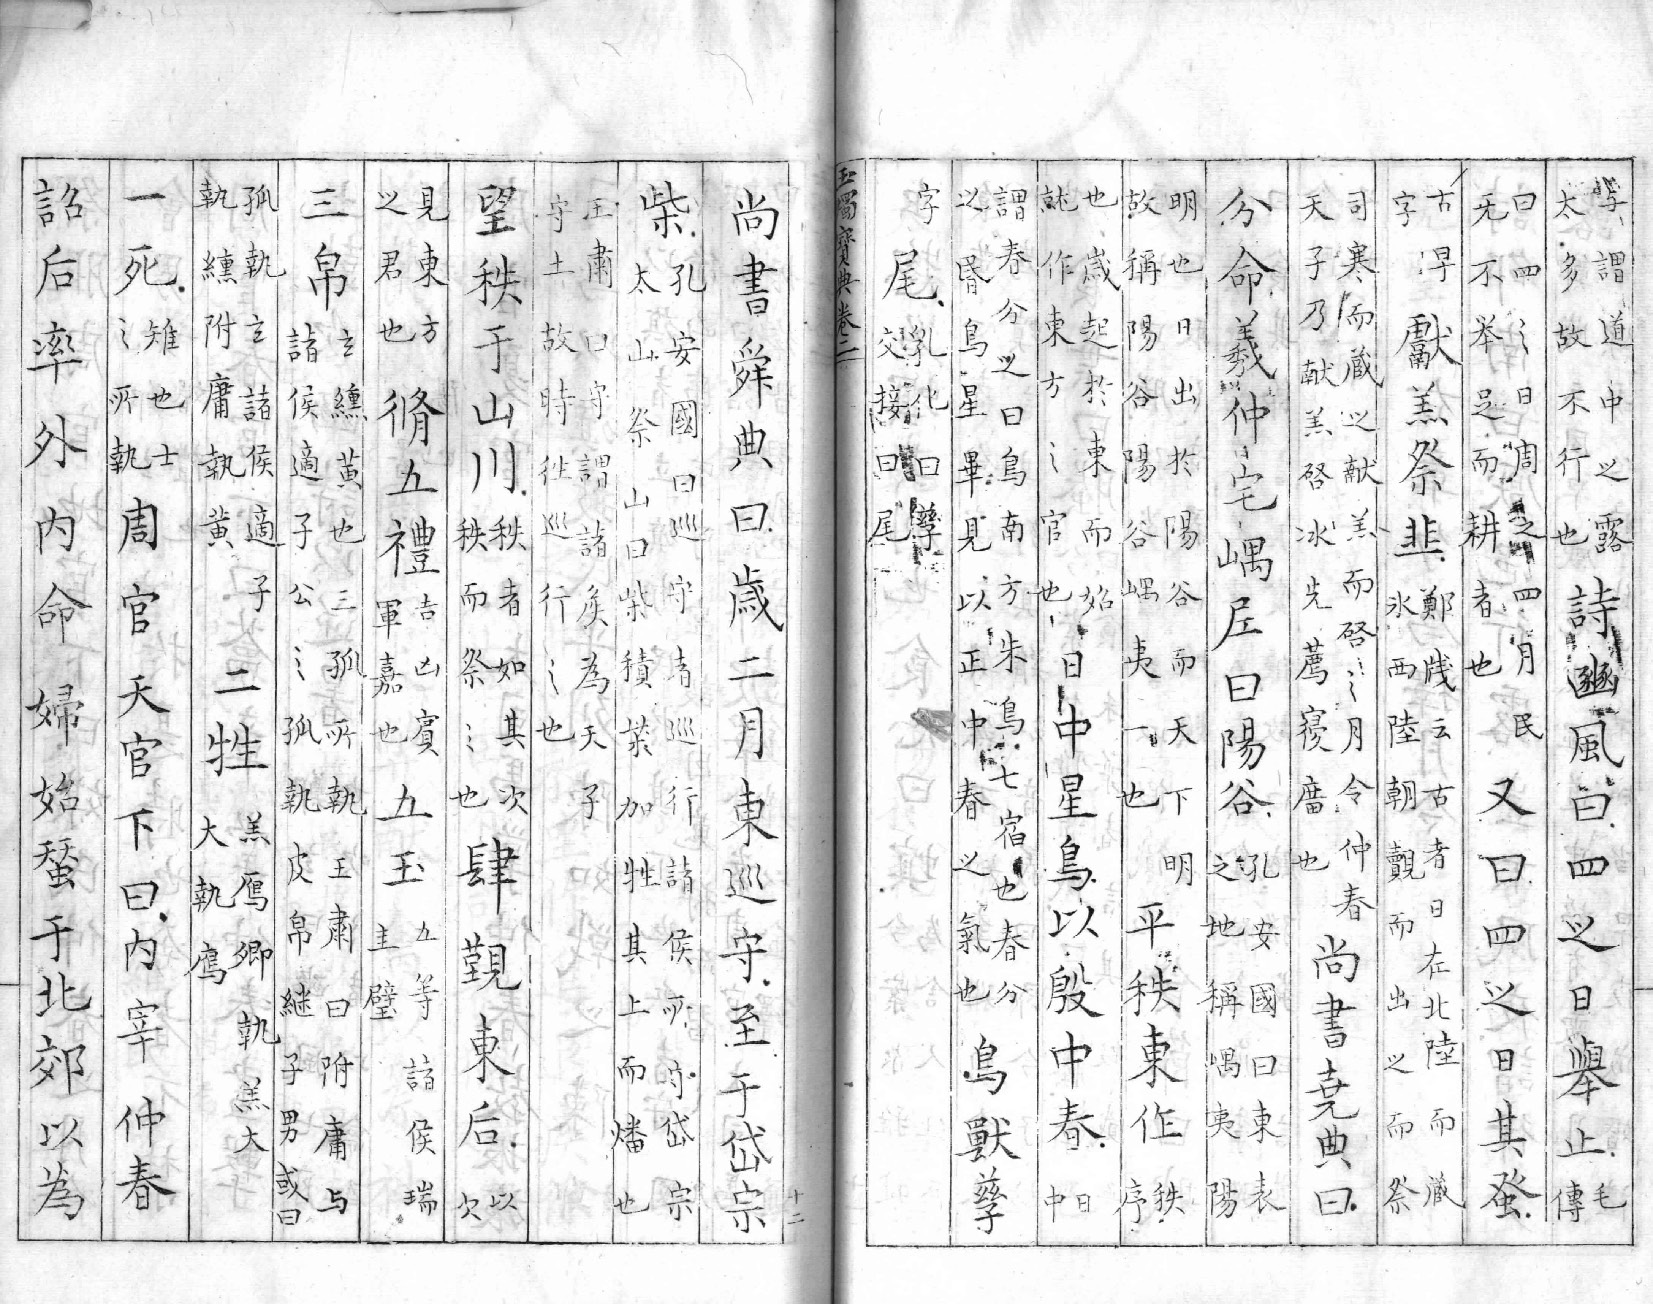 孛謂道中之露太多故不行也詩豳風曰四之日舉止毛傳
曰四之日周之四月民旡不举足而耕者也又曰四之日其蚤
古早字獻羔祭韭鄭牋云古者日在北陸而蔵氷西陸朝覿而出之而祭
司寒而蔵之献羔而啓之月令仲春天子乃献羔啓冰先薦寝庿也尚書尭典曰
分命羲仲宅嵎𡰥曰陽谷孔安國曰東表之地稱嵎夷陽
明也日出於陽谷而天下明故稱陽谷陽谷嵎夷一也平秩東作秩序
也歳起於東而始就作東方之官也日中星鳥以殷中春日中
謂春分之日鳥南方朱鳥七宿也春分之昏鳥星畢見以正中春之氣也鳥獸孳
字尾乳化曰孳交接曰尾
玉燭寳典卷二
尚書舜典曰歳二月東巡守至于岱宗
柴孔安國曰巡守者巡行諸侯所守岱宗太山祭山曰柴積柴加牲其上而燔也
王肅曰守謂諸矦為天子守土故時徃巡行之也
望秩于山川秩者如其次秩而祭之也肆覲東后以次
見東方之君也脩五禮吉凶賓軍嘉也五玉五等諸侯瑞圭璧
三帛玄纁黄也三孤所執王肅曰附庸与諸侯適子公之孤執皮帛継子男或曰
孤執玄諸侯適子執纁附庸執黄二牲羔鴈卿執羔大大執鴈
一死雉也士之所執周官天官下曰内宰仲春
詔后率外内命婦始蚕于北郊以為
十二